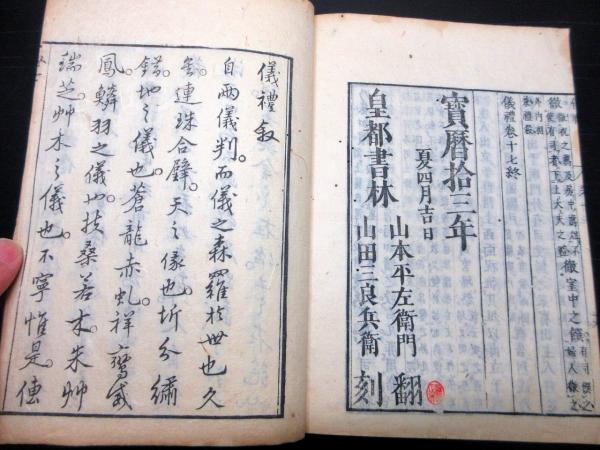 徹室中之饌
儀禮卷十七終
寶暦拾三年
夏四月吉日
皇都書林
山本平左衛門
山田三良兵衛
翻刻
儀禮叙
自兩儀判。而儀之森羅於世也久
矣。連珠合璧。天之像也。圻分繡
錯。地之儀也。蒼龍赤虬祥鸞威
鳳。鱗羽之儀也。扶桑若木朱艸
瑞芝。艸木之儀也。不寧惟是。傳